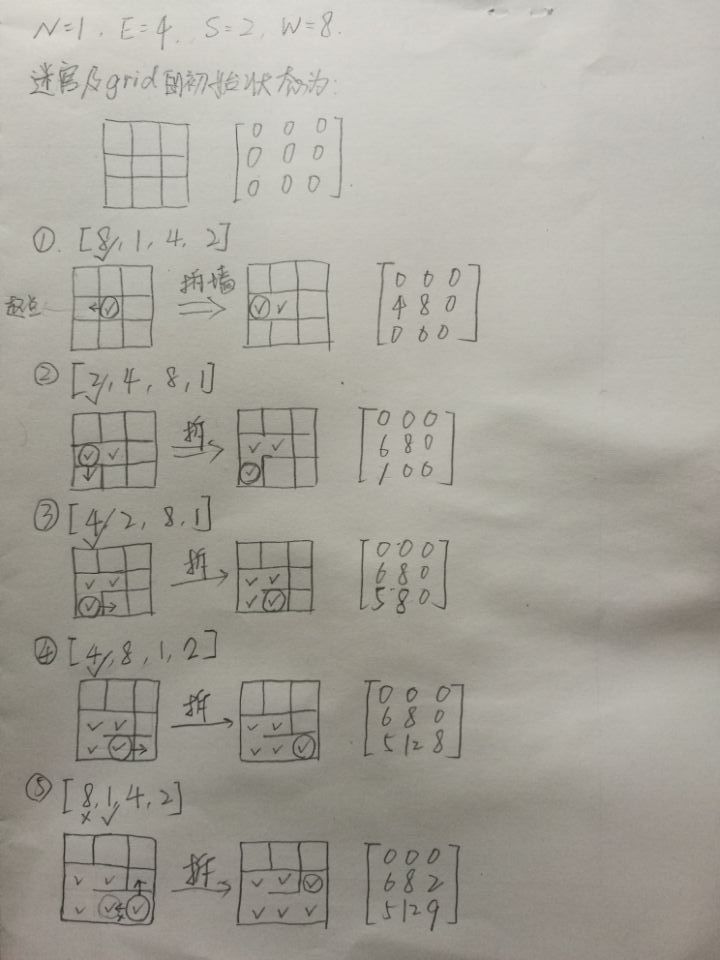 N=1, E=4, S=2, W=8.
迷宫及grid的初始状态为:
0 0 0
0 0 0
0 0 0
①. [8, 1, 4, 2]
起点
拆墙
0 0 0
4 8 0
0 0 0
② [2, 4, 8, 1]
拆
0 0 0
6 8 0
1 0 0
③ [4, 2, 8, 1]
拆
0 0 0
6 8 0
5 8 0
④ [4, 8, 1, 2]
拆
0 0 0
6 8 0
5 12 8
⑤ [8, 1, 4, 2]
拆
0 0 0
6 8 2
5 12 9